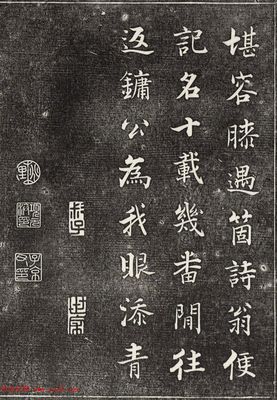 堪容膝遇箇詩翁便
記名十載幾番閒往
返鏞公為我眼添青